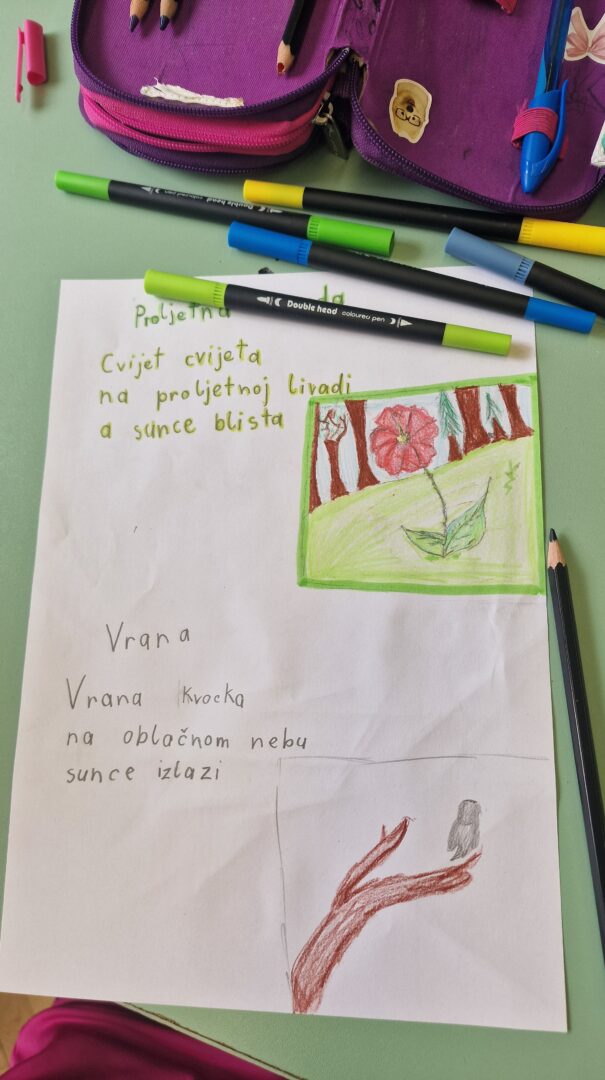 Double head coloured pen
Proljetna da
Double head coloured pen
Cvijet cvijeta
na proljetnoj livadi
a sunce blista
Vrana
Vrana kvocka
na oblačnom nebu
sunce izlazi